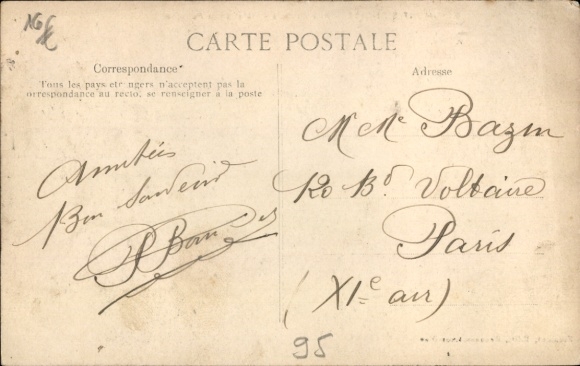 CARTE POSTALE
Correspondance
Tous les pays etrangers n'acceptent pas la
correspondance au recto, se renseigner à la poste
Amitiés
Bon Souvenir
Adresse
M Me Bazin
120 Bd. Voltaire
Paris
(XIe arr)
95